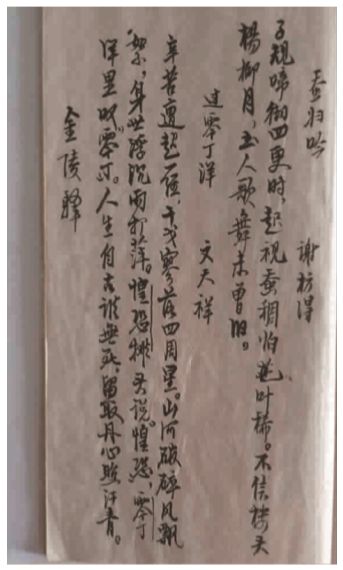 蚕妇吟 谢枋得
子规啼彻四更时，起视蚕稠怕叶稀。不信楼头
杨柳月，玉人歌舞未曾归。
过零丁洋 文天祥
辛苦遭起一经，干戈寥落四周星。山河破碎风飘
絮，身世浮沉雨打萍。惶恐滩头说惶恐，零丁
洋里叹零丁。人生自古谁無死，留取丹心照汗青。
金陵驿